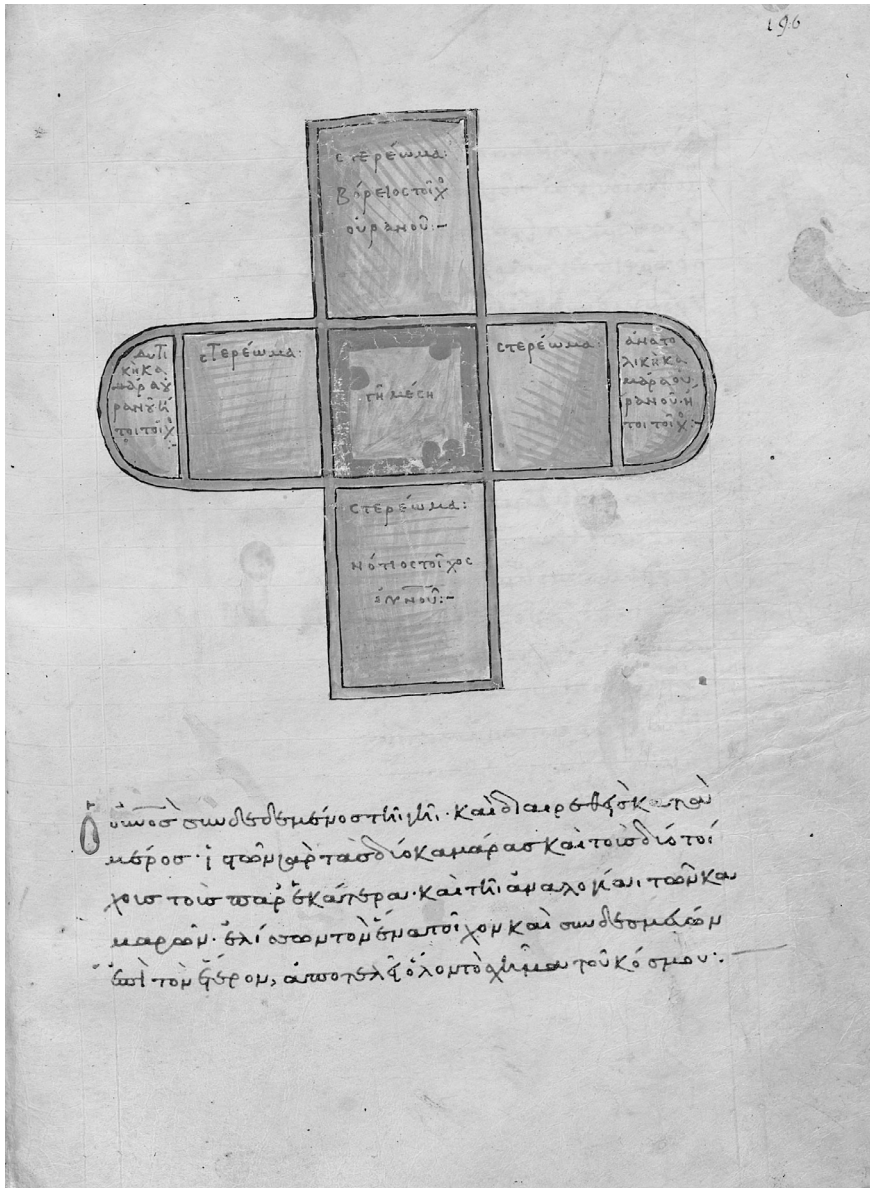 196
στερέωμα:
βόρειος τοῖχο
οὐρανοῦ:-
δυτι
κὴ κα
μάρα οὐ
ρανοῦ ἤ
τοι τοῖχο
στερέωμα:
γῆ μέση
στερέωμα:
ἀνατο
λικὴ κα
μάρα οὐ
ρανοῦ ἤ
τοι τοῖχο:-
στερέωμα:
νότιος τοῖχος
οὐνοῦ:-
οὐνοσ συνδεδεμένοσ τῆι γῆι· καὶ διαιρεθεὶσ κατὰ
μέροσ· εἰσ
καμάρασ καὶ τοῖσ δύο τοί
χοισ τοῖσ παρ' ἑκάτερα· καὶ τῆι ἀναλογίαι τῶν κα
μαρῶν· ἑλίσσων τὸν ἕνα τοῖχον καὶ συνδεσμεύων
ἐπὶ τὸν ἕτερον, ἀποτελεῖ ὅλον τὸ σχῆμα τοῦ κόσμου:.